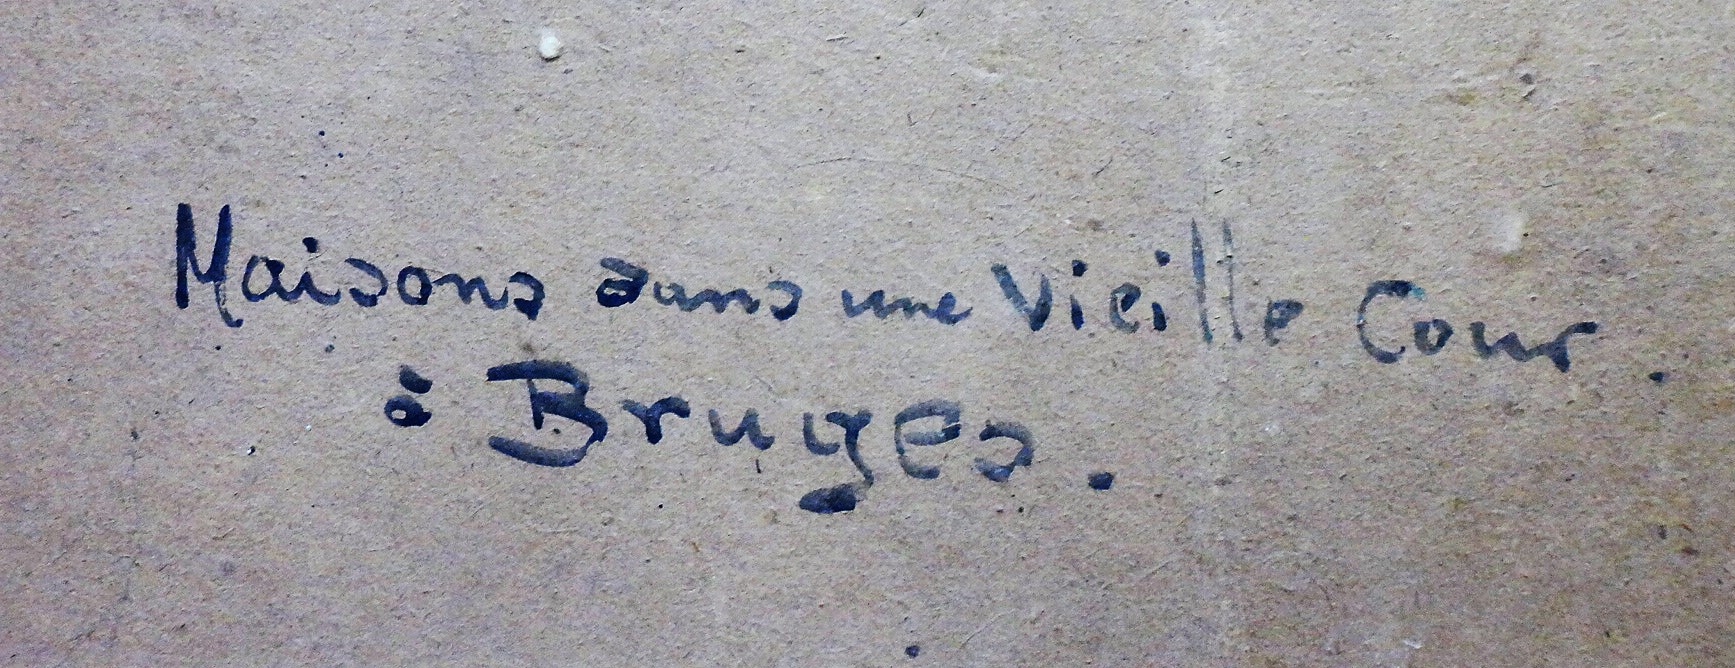 Maisons dans une Vieille Cour.
à Bruges.